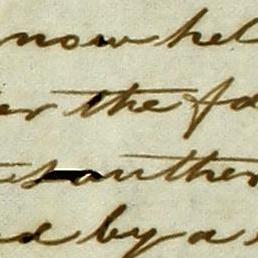 now hel
er the fa
anther
by a